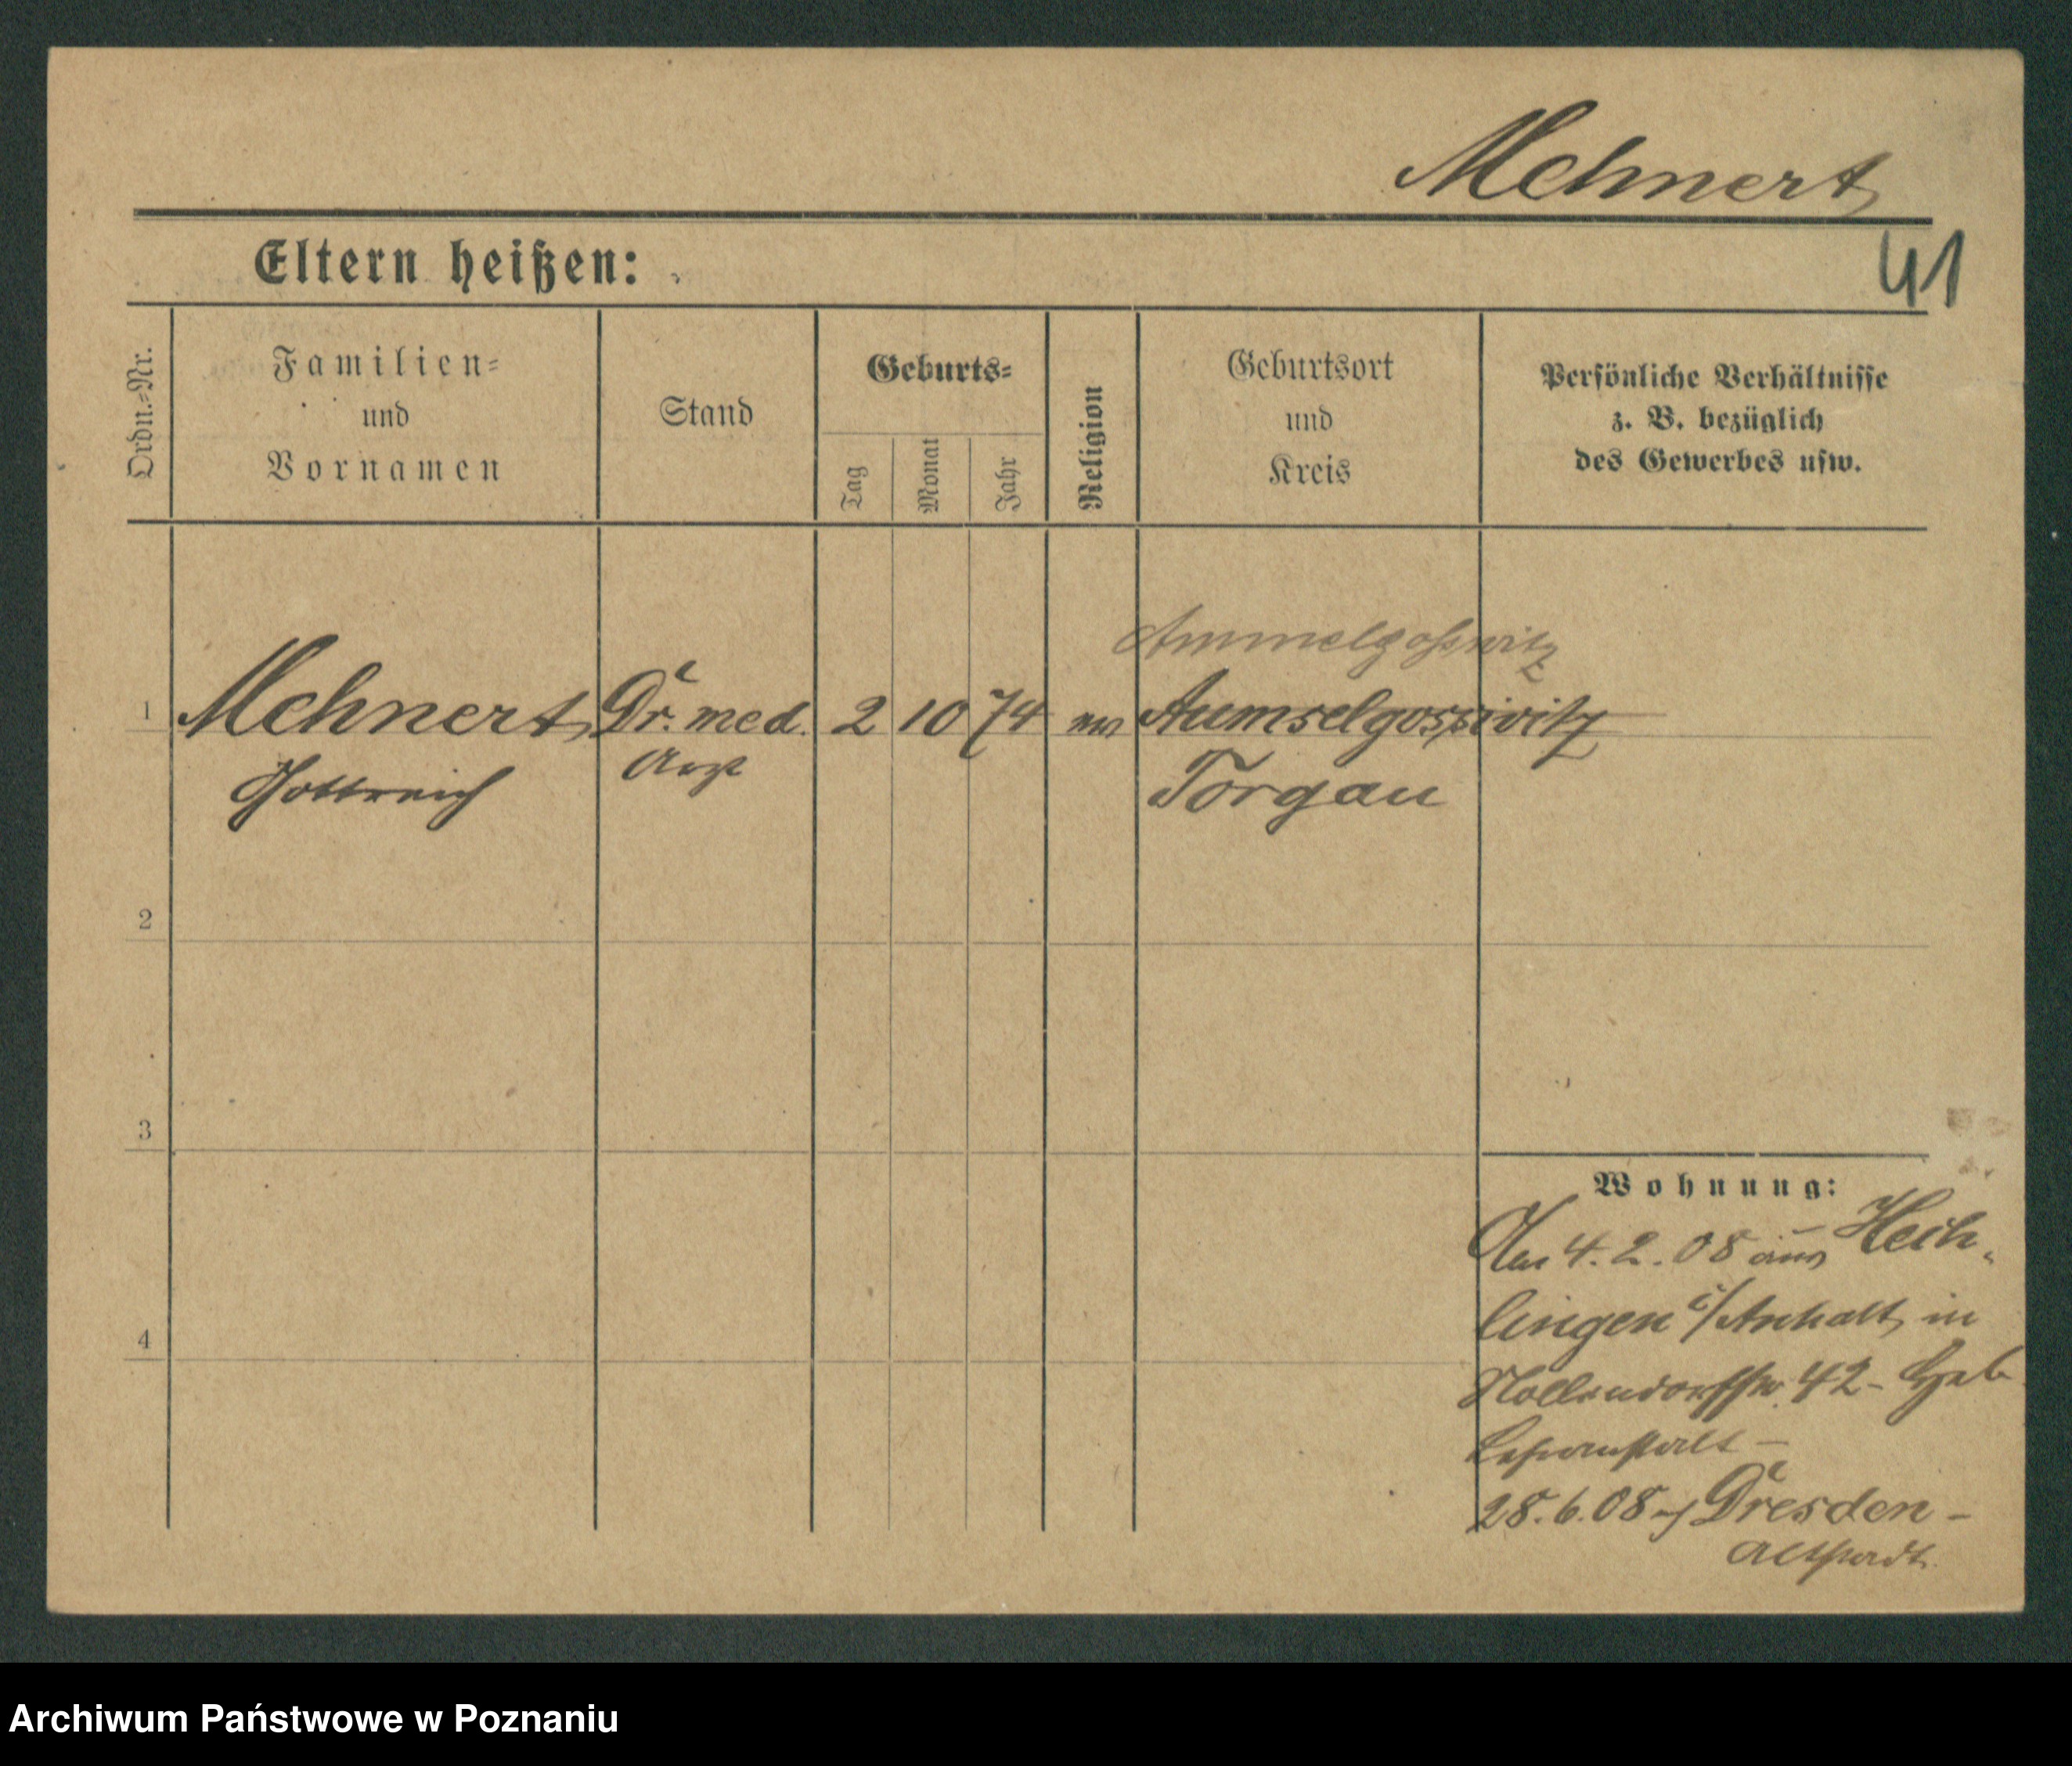 Mehnert
Eltern heißen:
41
Ordn.-Nr.
Familien-
und
Vornamen
Stand
Geburts-
Tag
Monat
Jahr
Religion
Geburtsort
und
Kreis
Persönliche Verhältnisse
z. B. bezüglich
des Gewerbes usw.
Ammelgoßwitz
1 Mehnert Dr. med. 2 10 74 ev Aumselgossiwitz
Gottreich Arzt Torgau
2
3
4
Wohnung:
4.2.08 aus
lingen i/Anhalt in
Nollendorffstr. 42 - Heb
Lehranstalt -
28.6.08 Dresden -
Altstadt.
Archiwum Państwowe w Poznaniu